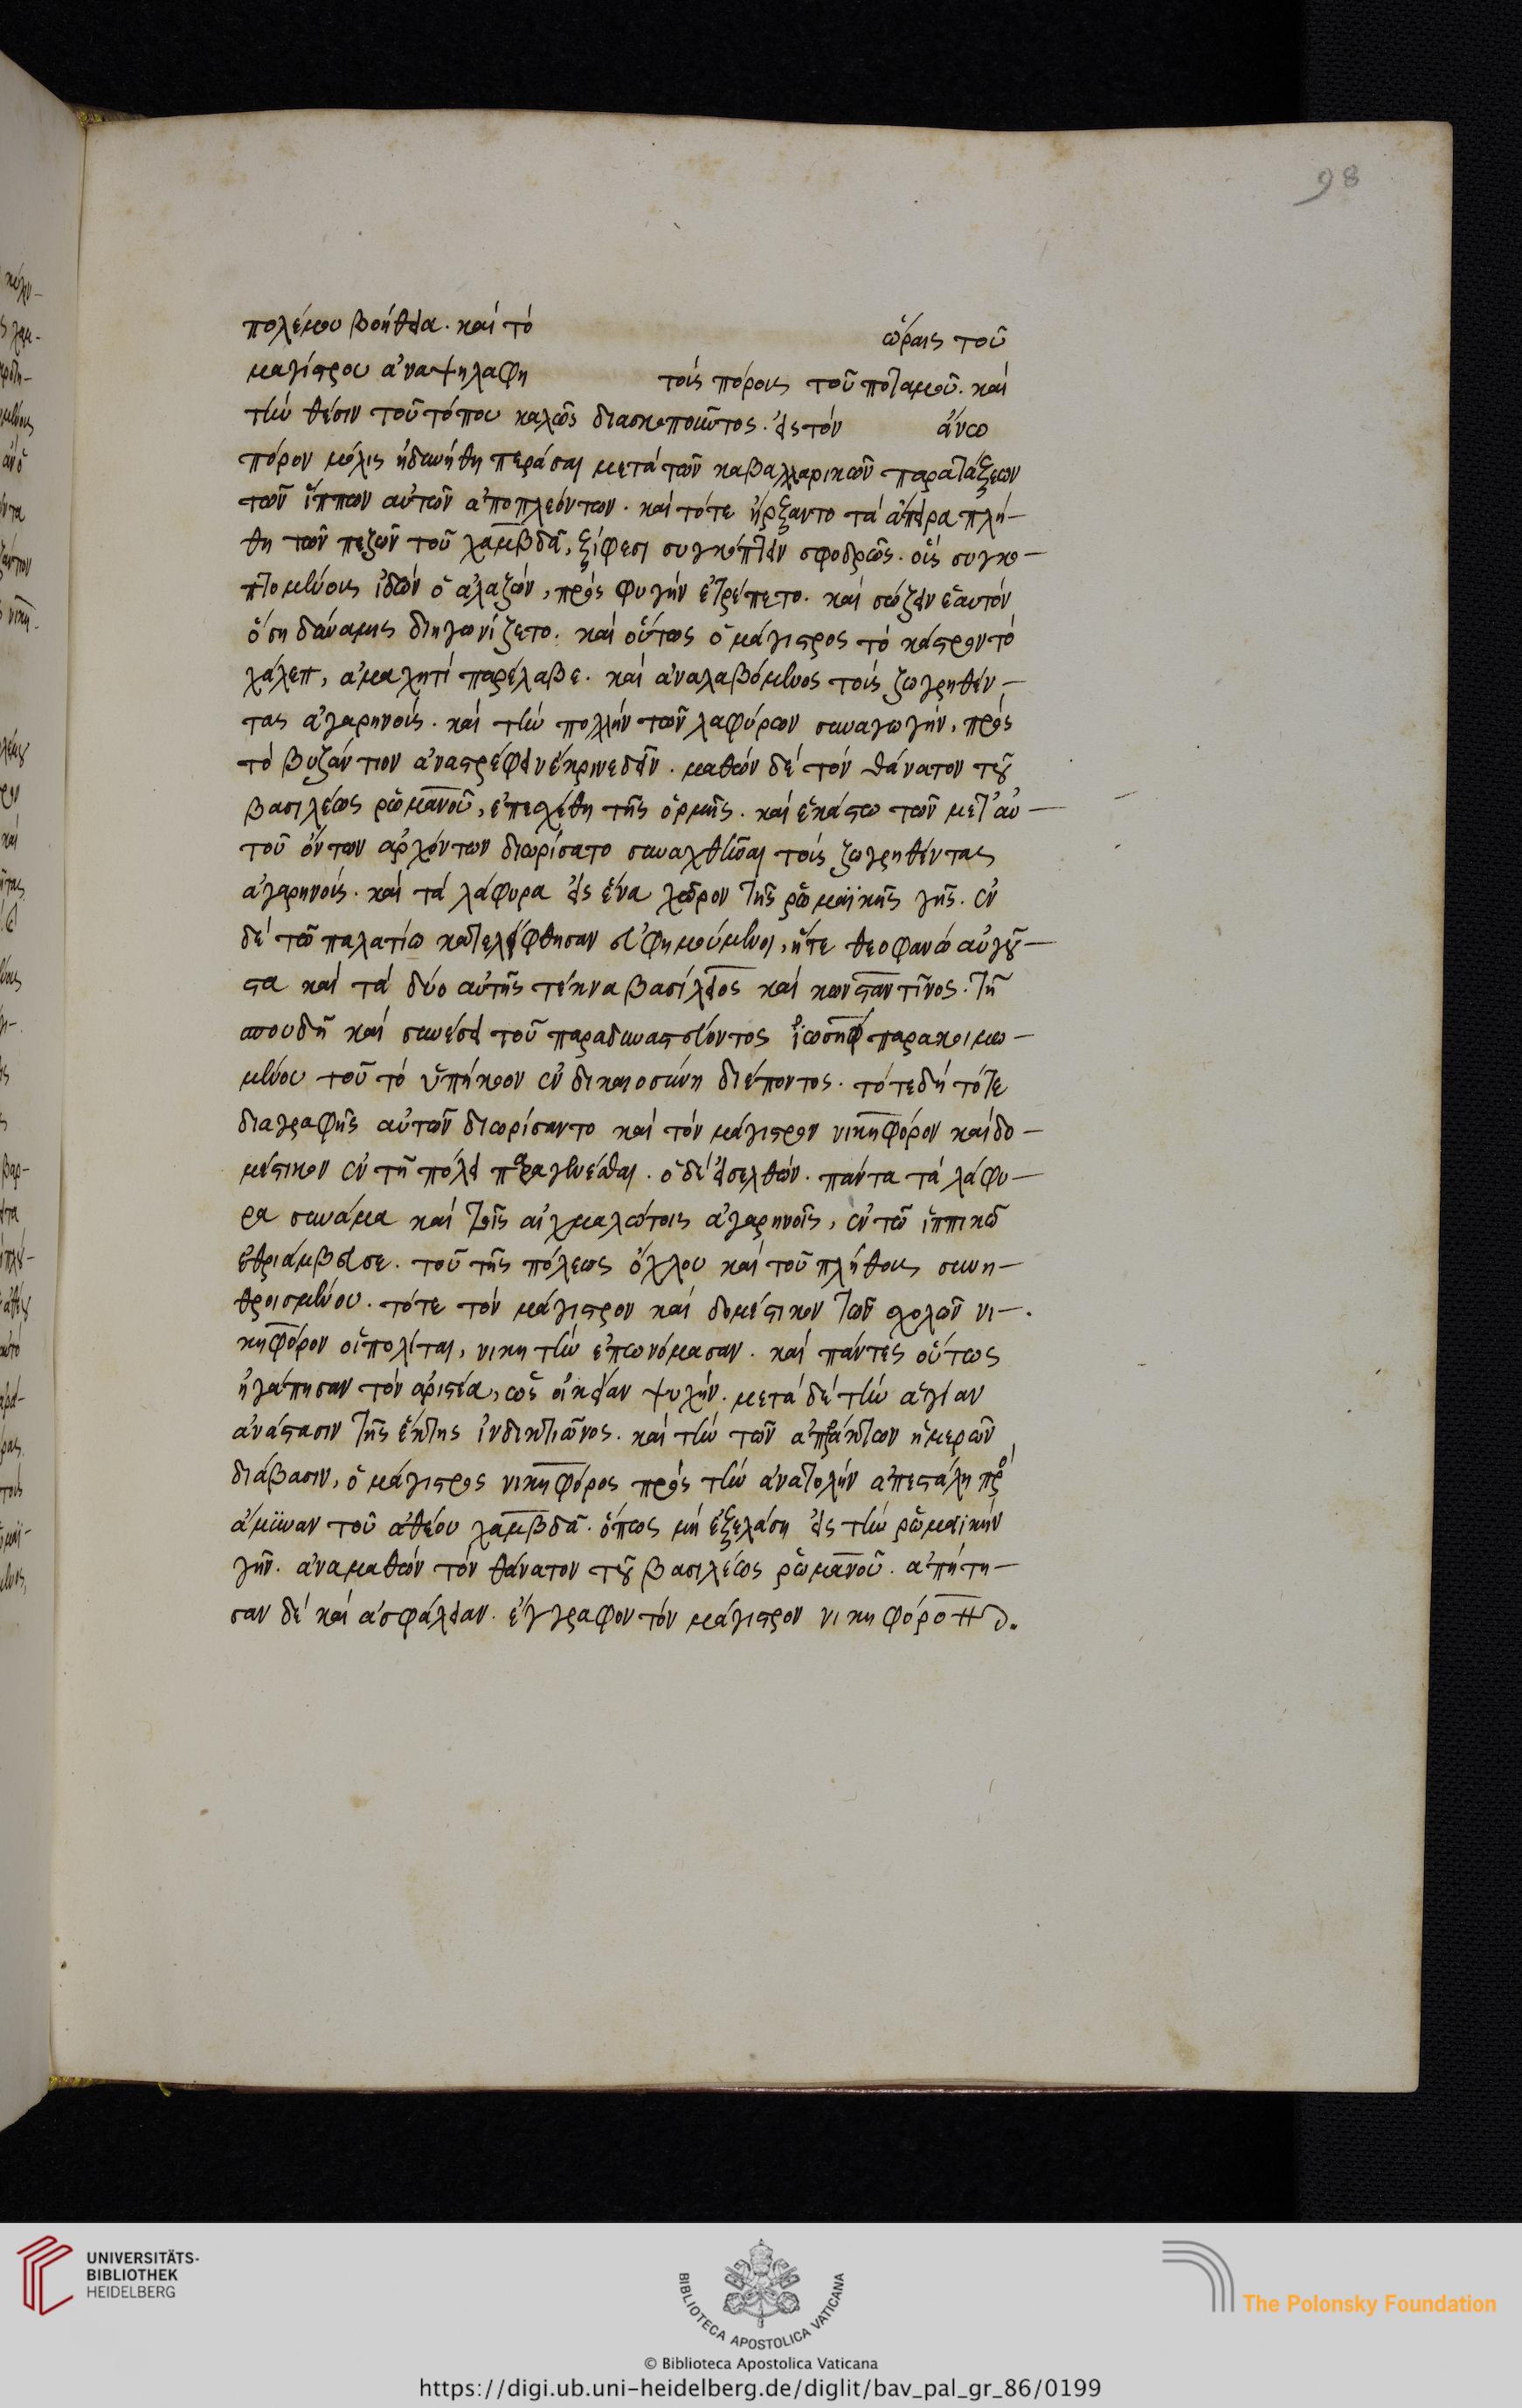 98
πολέμου βοήθεια. καὶ τὸ ὥραις τοῦ
μαγίστρου ἀναψηλαφη τοὺς πόρους τοῦ ποταμοῦ. καὶ
τὴν θέσιν τοῦ τόπου καλῶς διασκοποῦντος. εἰς τὸν ἄνω
πόρον μόλις ἠδυνήθη περάσαι μετὰ τῶν καβαλλαρικῶν παρατάξεων
τῶν ἵππων αὐτῶν ἀποπλεόντων. καὶ τότε ἤρξαντο τὰ ἄπειρα πλή-
θη τῶν πεζῶν τοῦ χαμβδᾶ, ξίφεσι συγκόπτειν σφοδρῶς. οὓς συγκο-
πτομένους ἰδὼν ὁ ἀλαζών, πρὸς φυγὴν ἐτρέπετο. καὶ σώζειν ἑαυτὸν
ὅση δύναμις διηγωνίζετο. καὶ οὕτως ὁ μάγιστρος τὸ κάστρον τὸ
χάλεπ, ἀμαχητὶ παρέλαβε. καὶ ἀναλαβόμενος τοὺς ζωγρηθέν-
τας ἀγαρηνούς. καὶ τὴν πολλὴν τῶν λαφύρων συναγωγήν, πρὸς
τὸ βυζάντιον ἀναστρέφειν ἔκρινε δεῖν. μαθὼν δὲ τὸν θάνατον τοῦ
βασιλέως ῥωμανοῦ, ἐπεσχέθη τῆς ὁρμῆς. καὶ ἑκάστω τῶν μετ' αὐ-
τοῦ ὄντων ἀρχόντων διωρίσατο συναχθῆναι τοὺς ζωγρηθέντας
ἀγαρηνούς. καὶ τὰ λάφυρα εἰς ἕνα χῶρον τῆς ῥωμαϊκῆς γῆς. ἐν
δὲ τῶ παλατίω κατελείφθησαν εὐφημούμενοι, ἥτε θεοφανὼ αὐγοῦ-
στα καὶ τὰ δύο αὐτῆς τέκνα βασίλειος καὶ κωνσταντῖνος. τῆ
σπουδῆ καὶ συνέσει τοῦ παραδυναστεύοντος ἰωσὴφ παρακοιμω-
μένου τοῦ τὸ ὑπήκοον ἐν δικαιοσύνη διέποντος. τότε δὴ τότε
διαγραφῆς αὐτῶν διωρίσαντο καὶ τὸν μάγιστρον νικηφόρον καὶ δο-
μέστικον ἐν τῆ πόλει παραγενέσθαι. ὁ δὲ εἰσελθών. πάντα τὰ λάφυ-
ρα συνάμα καὶ τοῖς αἰχμαλώτοις ἀγαρηνοῖς, ἐν τῶ ἱππικῶ
ἐθριάμβευσε. τοῦ τῆς πόλεως ὄχλου καὶ τοῦ πλήθους συνη-
θροισμένου. τότε τὸν μάγιστρον καὶ δομέστικον τῶν σχολῶν νι-
κηφόρον οἱ πολίται, νικητὴν ἐπωνόμασαν. καὶ πάντες οὕτως
ἠγάπησαν τὸν ἀριστέα, ὡς οἰκείαν ψυχήν. μετὰ δὲ τὴν ἁγίαν
ἀνάστασιν τῆς ἕκτης ἰνδικτιῶνος. καὶ τὴν τῶν ἀπράκτων ἡμερῶν
διάβασιν, ὁ μάγιστρος νικηφόρος πρὸς τὴν ἀνατολὴν ἀπεστάλη πρὸς
ἄμυναν τοῦ ἀθέου χαμβδᾶ. ὅπως μὴ ἐξελάση εἰς τὴν ῥωμαϊκὴν
γῆν. ἀναμαθὼν τὸν θάνατον τοῦ βασιλέως ῥωμανοῦ. ἀπήτη-
σαν δὲ καὶ ἀσφάλειαν. ἔγγραφον τὸν μάγιστρον νικηφόρον
UNIVERSITÄTS-
BIBLIOTHEK
HEIDELBERG
BIBLIOTECA APOSTOLICA VATICANA
The Polonsky Foundation
© Biblioteca Apostolica Vaticana
https://digi.ub.uni-heidelberg.de/diglit/bav_pal_gr_86/0199